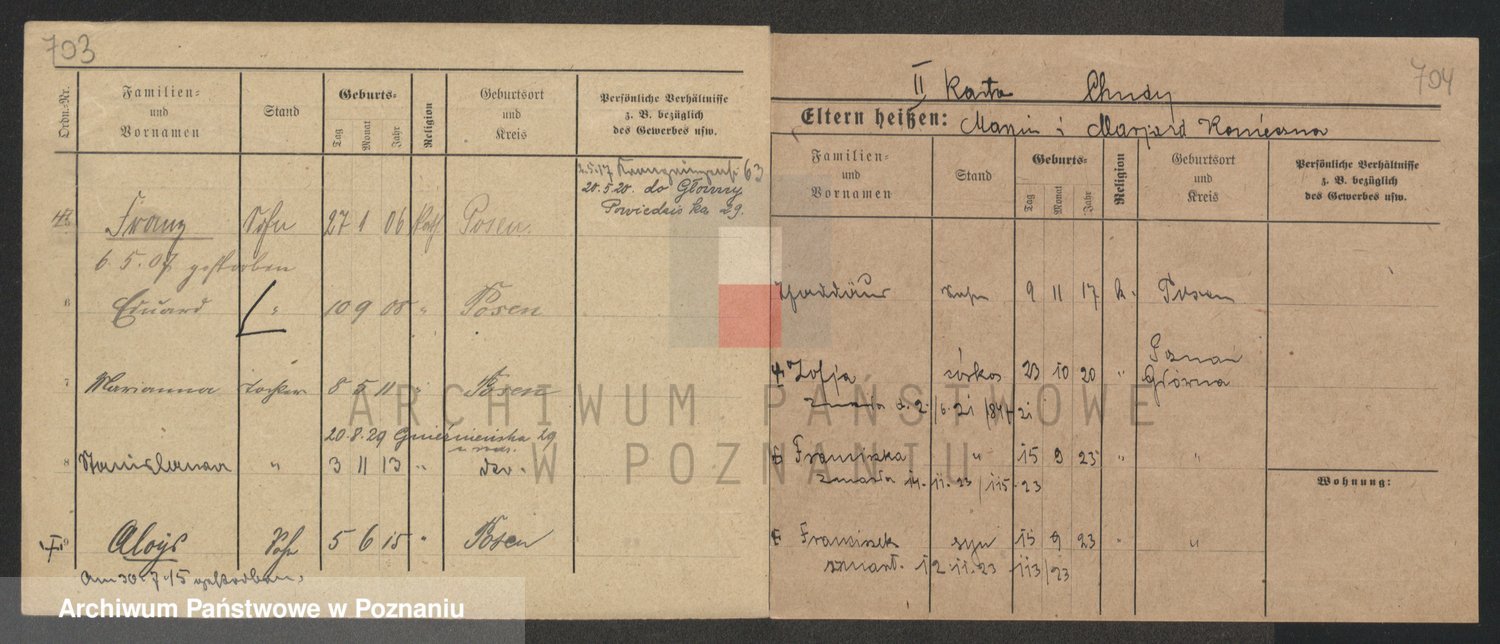 703
Ordn.-Nr.
Familien- und Vornamen
Stand
Geburts-
Tag Monat Jahr
Religion
Geburtsort und Kreis
Persönliche Verhältnisse z. B. bezüglich des Gewerbes usw.
2.5.17 63
20.5.20. do Główny
29.
Franz Sohn 27 1 06 kath Posen.
6.5.07 gestorben
6 Eduard " 10 9 08 " Posen
7 Marianna Tochter 8 5 11 " Posen
20.8.29 Gnieźnieńska 29
8 Stanislawa " 3 11 13 "
9 Aloys Sohn 5 6 15 " Posen
Am 30.7.15 gestorben.
704
II Karta Chudy
Eltern heißen: Marcin i Konieczna
Familien- und Vornamen
Stand
Geburts-
Tag Monat Jahr
Religion
Geburtsort und Kreis
Persönliche Verhältnisse z. B. bezüglich des Gewerbes usw.
Thaddäus Sohn 9 11 17 k. Posen
Zofja córka 23 10 20 " Poznań Główna
zmarła d. 2./6.21
Franciszka " 15 9 23 " "
zmarła 14.11.23 /115.23
Wohnung:
Franciszek syn 15 9 23 " "
zmarł. 12.11.23 113/23
ARCHIWUM PAŃSTWOWE
W POZNANIU
Archiwum Państwowe w Poznaniu